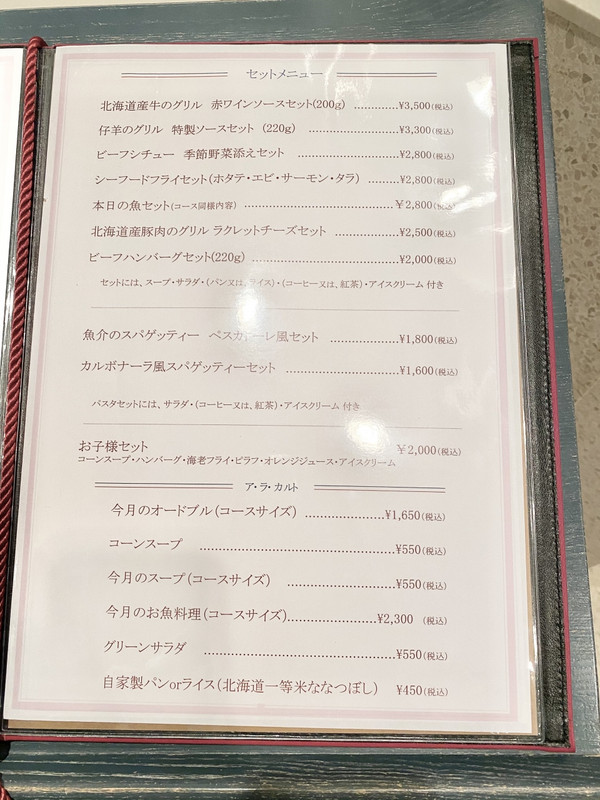 セットメニュー
北海道産牛のグリル 赤ワインソースセット(200g) ............¥3,500(税込)
仔羊のグリル 特製ソースセット (220g) ........................¥3,300(税込)
ビーフシチュー 季節野菜添えセット ...........................¥2,800(税込)
シーフードフライセット(ホタテ・エビ・サーモン・タラ) ........¥2,800(税込)
本日の魚セット(コース同様内容) ........................................¥2,800(税込)
北海道産豚肉のグリル ラクレットチーズセット .................¥2,500(税込)
ビーフハンバーグセット(220g) ........................................¥2,000(税込)
セットには、スープ・サラダ・(パン又は、ライス)・(コーヒー又は、紅茶)・アイスクリーム 付き
魚介のスパゲッティー ペスカトーレ風セット ..................¥1,800(税込)
カルボナーラ風スパゲッティーセット .............................¥1,600(税込)
パスタセットには、サラダ・(コーヒー又は、紅茶)・アイスクリーム 付き
お子様セット ¥2,000(税込)
コーンスープ・ハンバーグ・海老フライ・ピラフ・オレンジジュース・アイスクリーム
ア・ラ・カルト
今月のオードブル(コースサイズ) ....................¥1,650(税込)
コーンスープ ..................................................¥550(税込)
今月のスープ(コースサイズ) ............................¥550(税込)
今月のお魚料理(コースサイズ).......................¥2,300 (税込)
グリーンサラダ ................................................¥550(税込)
自家製パンorライス(北海道一等米ななつぼし) ¥450(税込)